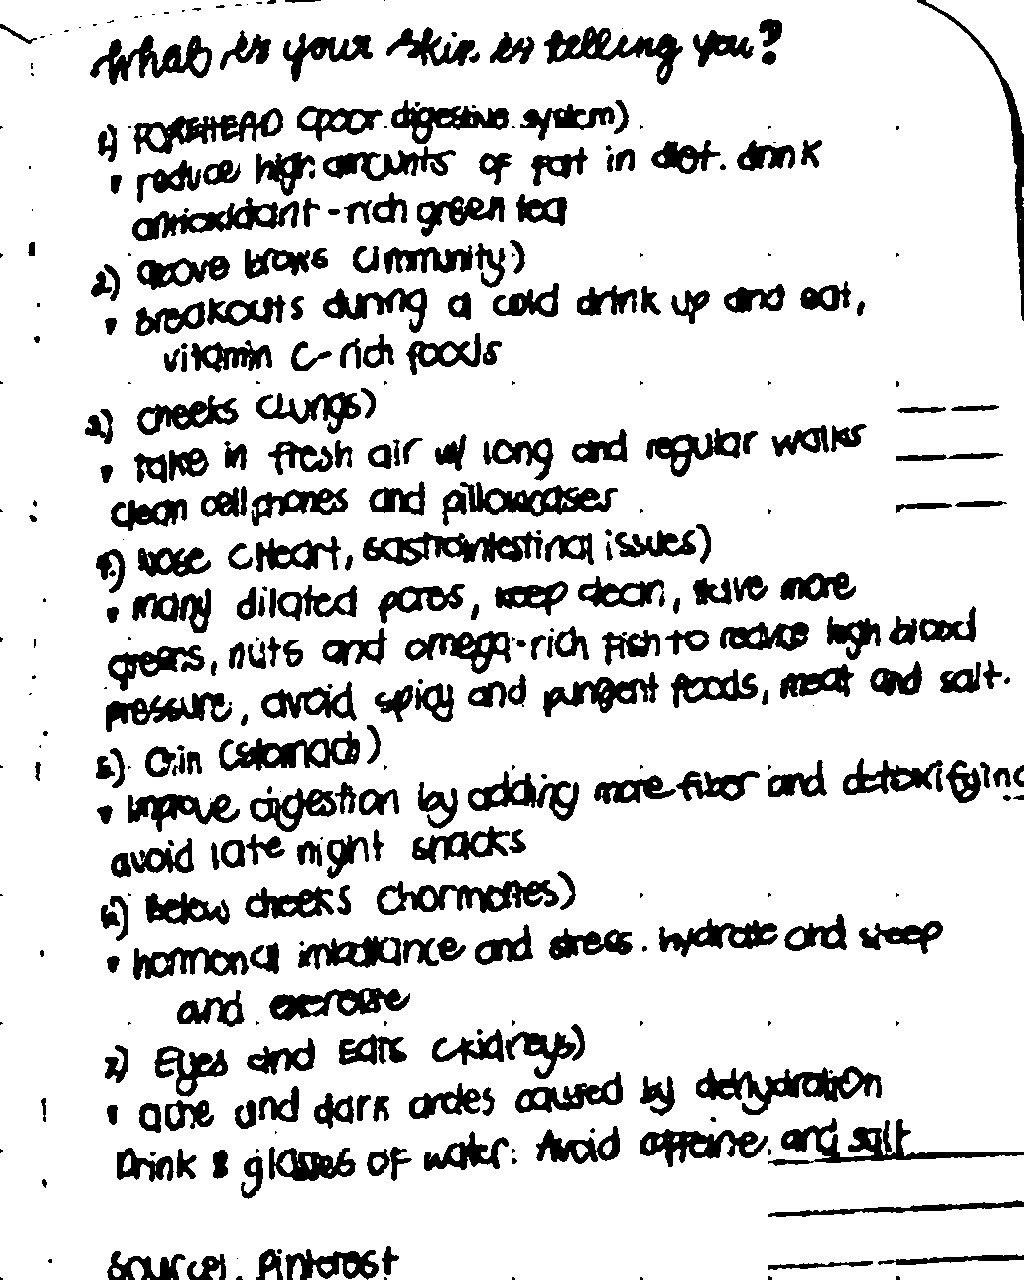 What is your skin is telling you?
1) FOREHEAD (poor digestive system)
• reduce high amounts of fat in diet. drink
antioxidant-rich green tea
2) above brows (immunity)
• breakouts during a cold drink up and eat,
vitamin C-rich foods
3) cheeks (Lungs)
• take in fresh air w/ long and regular walks
clean cellphones and pillowcases
4) Nose (Heart, gastrointestinal issues)
• many dilated pores, keep clean, have more
greens, nuts and omega-rich fish to reduce high blood
pressure, avoid spicy and pungent foods, meat and salt.
5) Chin (stomach)
• improve digestion by adding more fiber and detoxifying
avoid late night snacks
6) Below cheeks (hormones)
• hormonal imbalance and stress. hydrate and sleep
and exercise
7) Eyes and Ears (kidneys)
• acne and dark circles caused by dehydration
Drink 8 glasses of water. Avoid caffeine and salt
Source: Pinterest